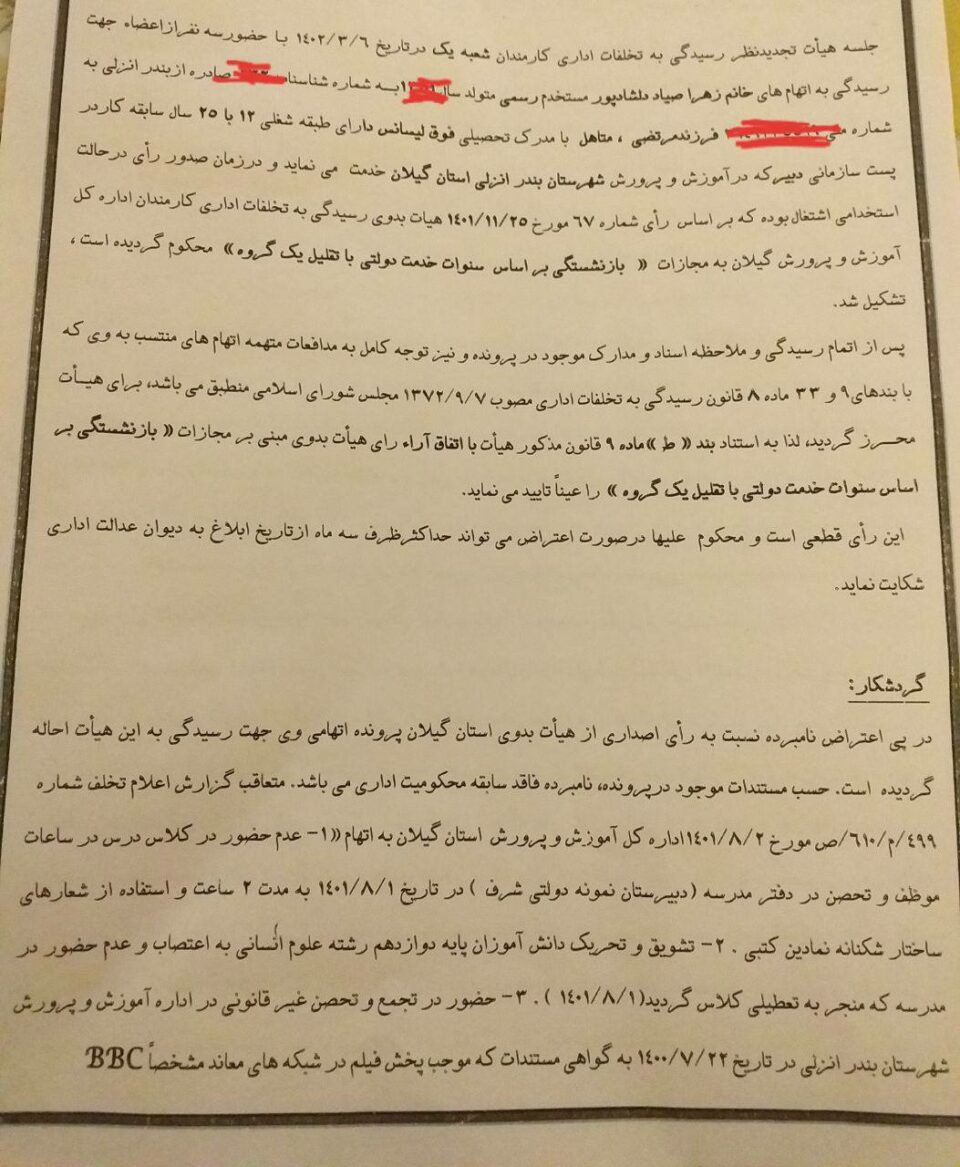 جلسه هیأت تجدیدنظر رسیدگی به تخلفات اداری کارمندان شعبه یک درتاریخ ۱۴۰۲/۳/۶ با حضورسه نفرازاعضاء جهت
رسیدگی به اتهام های خانم زهرا صیاد دلشادپور مستخدم رسمی متولد سال به شماره شناسنامه صادره ازبندر انزلی به
شماره ملی فرزندمرتضی ، متاهل با مدرک تحصیلی فوق لیسانس دارای طبقه شغلی ۱۲ با ۲۵ سال سابقه کاردر
پست سازمانی دبیرکه درآموزش و پرورش شهرستان بندر انزلی استان گیلان خدمت می نماید و درزمان صدور رأی درحالت
استخدامی اشتغال بوده که بر اساس رأی شماره ۶۷ مورخ ۱۴۰۱/۱۱/۲۵ هیات بدوی رسیدگی به تخلفات اداری کارمندان اداره کل
آموزش و پرورش گیلان به مجازات « بازنشستگی بر اساس سنوات خدمت دولتی با تقلیل یک گروه» محکوم گردیده است ،
تشکیل شد.
پس از اتمام رسیدگی و ملاحظه اسناد و مدارک موجود در پرونده و نیز توجه کامل به مدافعات متهمه اتهام های منتسب به وی که
با بندهای۹ و ۳۳ ماده ۸ قانون رسیدگی به تخلفات اداری مصوب ۱۳۷۲/۹/۷ مجلس شورای اسلامی منطبق می باشد، برای هیـأت
محـرز گردید، لذا به استناد بند « ط »ماده ۹ قانون مذکور هیأت با اتفاق آراء رای هیأت بدوی مبنی بر مجازات « بازنشستگی بر
اساس سنوات خدمت دولتی با تقلیل یک گروه » را عیناً تایید می نماید.
این رأی قطعی است و محکوم علیها درصورت اعتراض می تواند حداکثرظرف سه ماه ازتاریخ ابلاغ به دیوان عدالت اداری
شکایت نماید.
گردشکار:
در پی اعتراض نامبرده نسبت به رأی اصداری از هیأت بدوی استان گیلان پرونده اتهامی وی جهت رسیدگی به این هیأت احاله
گردیده است. حسب مستندات موجود درپرونده، نامبرده فاقد سابقه محکومیت اداری می باشد. متعاقب گزارش اعلام تخلف شماره
۴۹۹/م/۶۱۰/ص مورخ ۱۴۰۱/۸/۲اداره کل آموزش و پرورش استان گیلان به اتهام«۱- عدم حضور در کلاس درس در ساعات
موظف و تحصن در دفتر مدرسه (دبیرستان نمونه دولتی شرف ) در تاریخ ۱۴۰۱/۸/۱ به مدت ۲ ساعت و استفاده از شعارهای
ساختار شکنانه نمادین کتبی . ۲- تشویق و تحریک دانش آموزان پایه دوازدهم رشته علوم انسانی به اعتصاب و عدم حضور در
مدرسه که منجر به تعطیلی کلاس گردید(۱۴۰۱/۸/۱ ) . ۳- حضور در تجمع و تحصن غیر قانونی در اداره آموزش و پرورش
شهرستان بندر انزلی در تاریخ ۱۴۰۰/۷/۲۲ به گواهی مستندات که موجب پخش فیلم در شبکه های معاند مشخصاً BBC